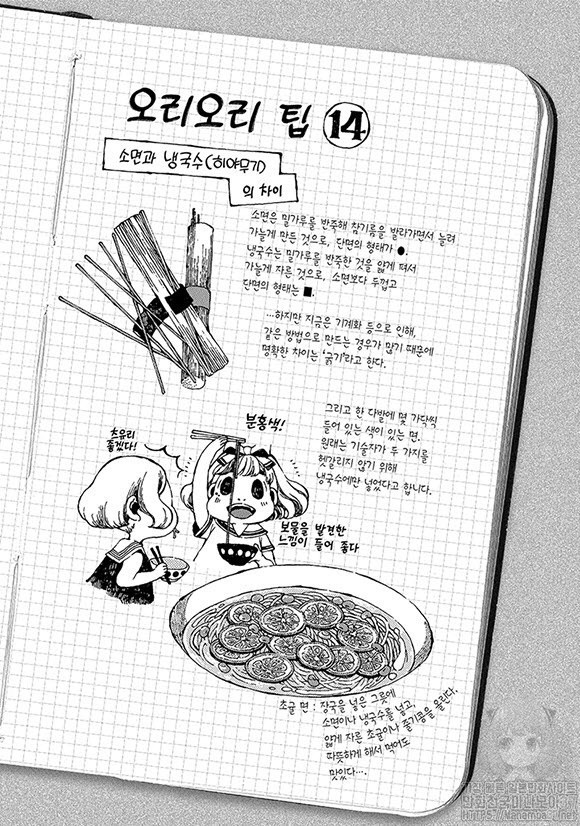 오리오리 팁 14
소면과 냉국수(히야무기)
의 차이
소면은 밀가루를 반죽해 참기름을 발라가면서 늘려
가늘게 만든 것으로, 단면의 형태가 ●.
냉국수는 밀가루를 반죽한 것을 얇게 펴서
가늘게 자른 것으로, 소면보다 두껍고
단면의 형태는 ■.
...하지만 지금은 기계화 등으로 인해,
같은 방법으로 만드는 경우가 많기 때문에
명확한 차이는 '굵기'라고 한다.
그리고 한 다발에 몇 가닥씩
들어 있는 색이 있는 면.
원래는 기술자가 두 가지를
헷갈리지 않기 위해
냉국수에만 넣었다고 합니다.
츠유리
좋겠다!
분홍색!
보물을 발견한
느낌이 들어 좋다
초귤 면 : 장국을 넣은 그릇에
소면이나 냉국수를 넣고,
얇게 자른 초귤이나 줄기콩을 올린다.
따뜻하게 해서 먹어도
맛있다....